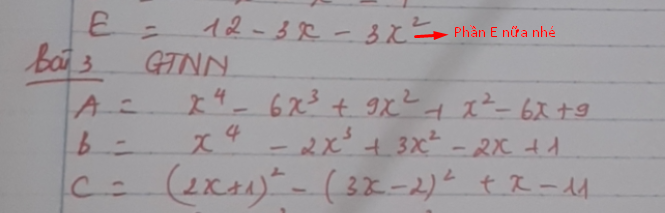 E = 12 - 3x - 3x² Phần E nữa nhé
Bài 3 GTNN
A = x⁴ - 6x³ + 9x² + x² - 6x + 9
B = x⁴ - 2x³ + 3x² - 2x + 1
C = (2x+1)² - (3x-2)² + x - 11